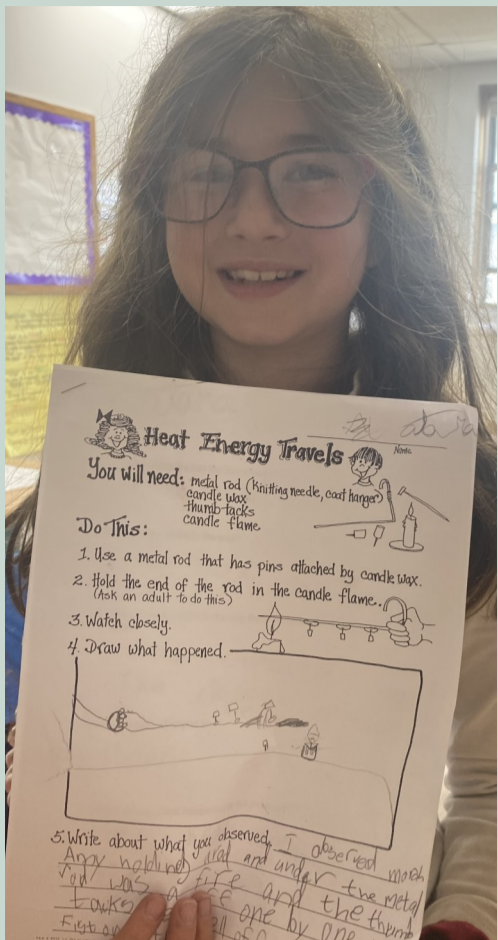 Heat Energy Travels
Name
You will need: metal rod (knitting needle, coat hanger)
candle wax
thumbtacks
candle flame
Do This:
1. Use a metal rod that has pins attached by candle wax.
2. Hold the end of the rod in the candle flame.
(Ask an adult to do this)
3. Watch closely.
4. Draw what happened.
5. Write about what you observed. I observed
holding and and under the metal
rod was fire and the thum
tacks one by one